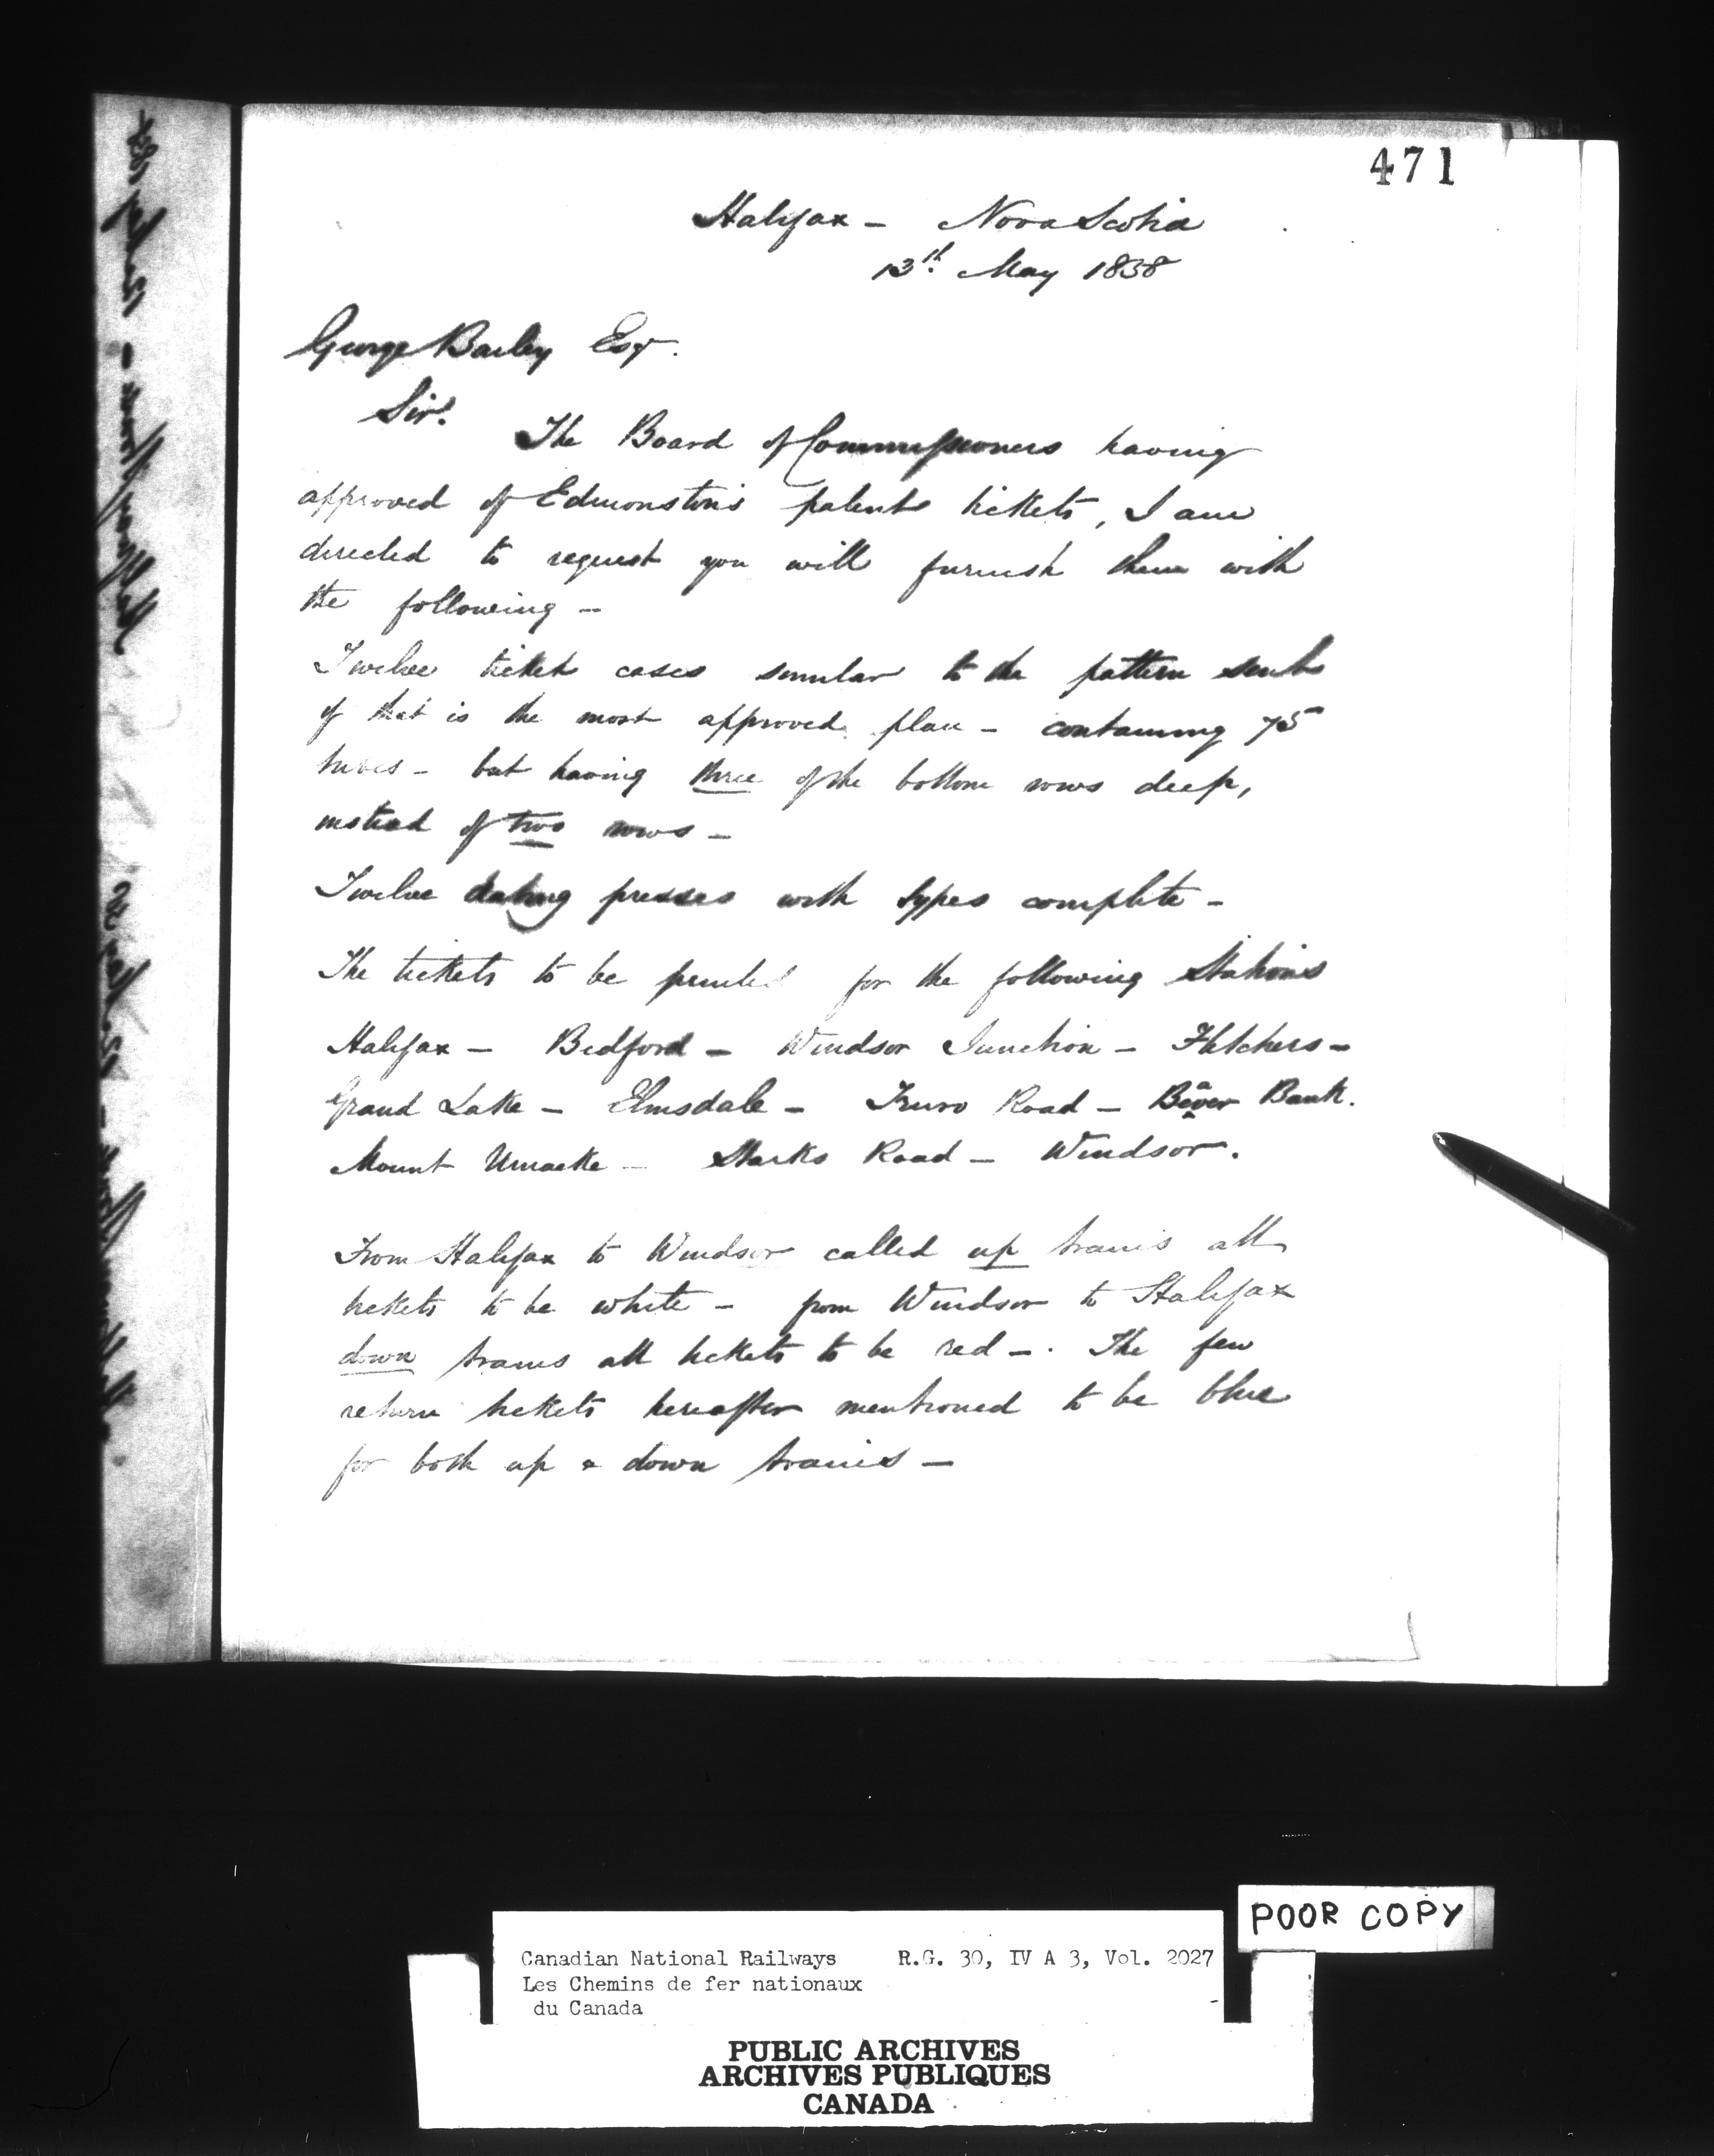 471
Halifax - Nova Scotia
13th. May 1858
George Barley Esqr.
Sir.
The Board of Commissioners having
approved of Edmonston's patent tickets, I am
directed to request you will furnish them with
the following -
Twelve ticket cases similar to the pattern sent
if that is the most approved plan - containing 75
tubes - but having three of the bottom rows deep,
instead of two rows -
Twelve dating presses with types complete -
The tickets to be printed for the following Stations
Halifax - Bedford - Windsor Junction - Fletchers -
Grand Lake - Elmsdale - Truro Road - Beaver Bank.
Mount Uniacke - Starks Road - Windsor.
From Halifax to Windsor called up trains all
tickets to be white - from Windsor to Halifax
down trains all tickets to be red -. The few
return tickets hereafter mentioned to be blue
for both up & down trains -
POOR COPY
Canadian National Railways R.G. 30, IV A 3, Vol. 2027
Les Chemins de fer nationaux
du Canada
PUBLIC ARCHIVES
ARCHIVES PUBLIQUES
CANADA